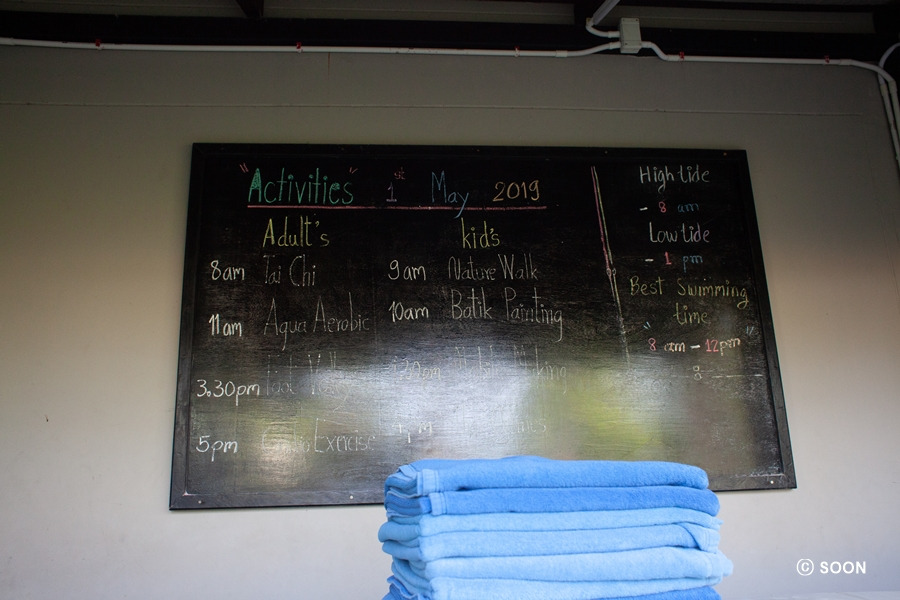 "Activities" 1st May 2019
Adult's
8am Tai Chi
11am Aqua Aerobic
3.30pm
5pm Exercise
kid's
9am Nature Walk
10am Batik Painting
High tide
- 8 am
Low tide
- 1 pm
Best Swimming
time
"8 am - 12pm"
© SOON